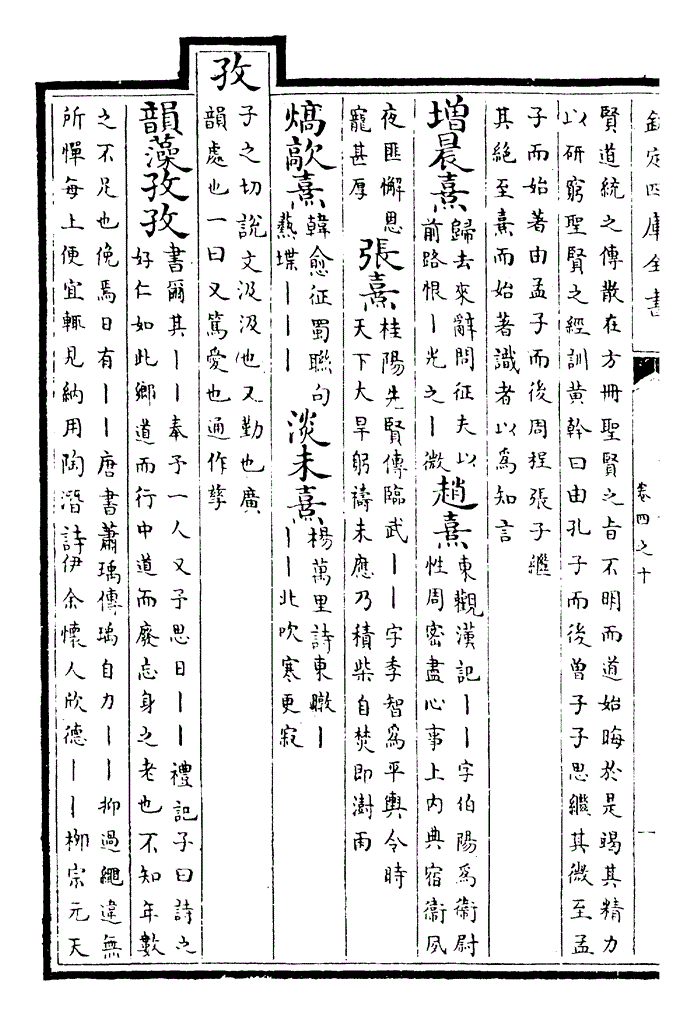 欽定四庫全書
卷四之十
一
賢道統之傳散在方冊聖賢之旨不明而道始晦於是竭其精力
以研窮聖賢之經訓黃榦曰由孔子而後曾子子思繼其微至孟
子而始著由孟子而後周程張子繼
其絕至熹而始著識者以為知言
增晨熹
歸去來辭問征夫以
前路恨丨光之丨微
趙熹
東觀漢記丨丨字伯陽為衛尉
性周密盡心事上內典宿衛夙
夜匪懈恩
寵甚厚
張熹
桂陽先賢傳臨武丨丨字李智為平輿令時
天下大旱躬禱未應乃積柴自焚即澍雨
熇歊熹
韓愈征蜀聯句
熱堞丨丨丨
淡未熹
楊萬里詩東暾丨
丨丨北吹寒更寂
孜
子之切說文汲汲也又勤也廣
韻處也一曰又篤愛也通作孳
韻藻孜孜
書爾其丨丨奉予一人又予思日丨丨禮記子曰詩之
好仁如此鄉道而行中道而廢忘身之老也不知年數
之不足也俛焉日有丨丨唐書蕭瑀傳瑀自力丨丨抑過繩違無
所憚每上便宜輒見納用陶潛詩伊余懷人欣德丨丨柳宗元天